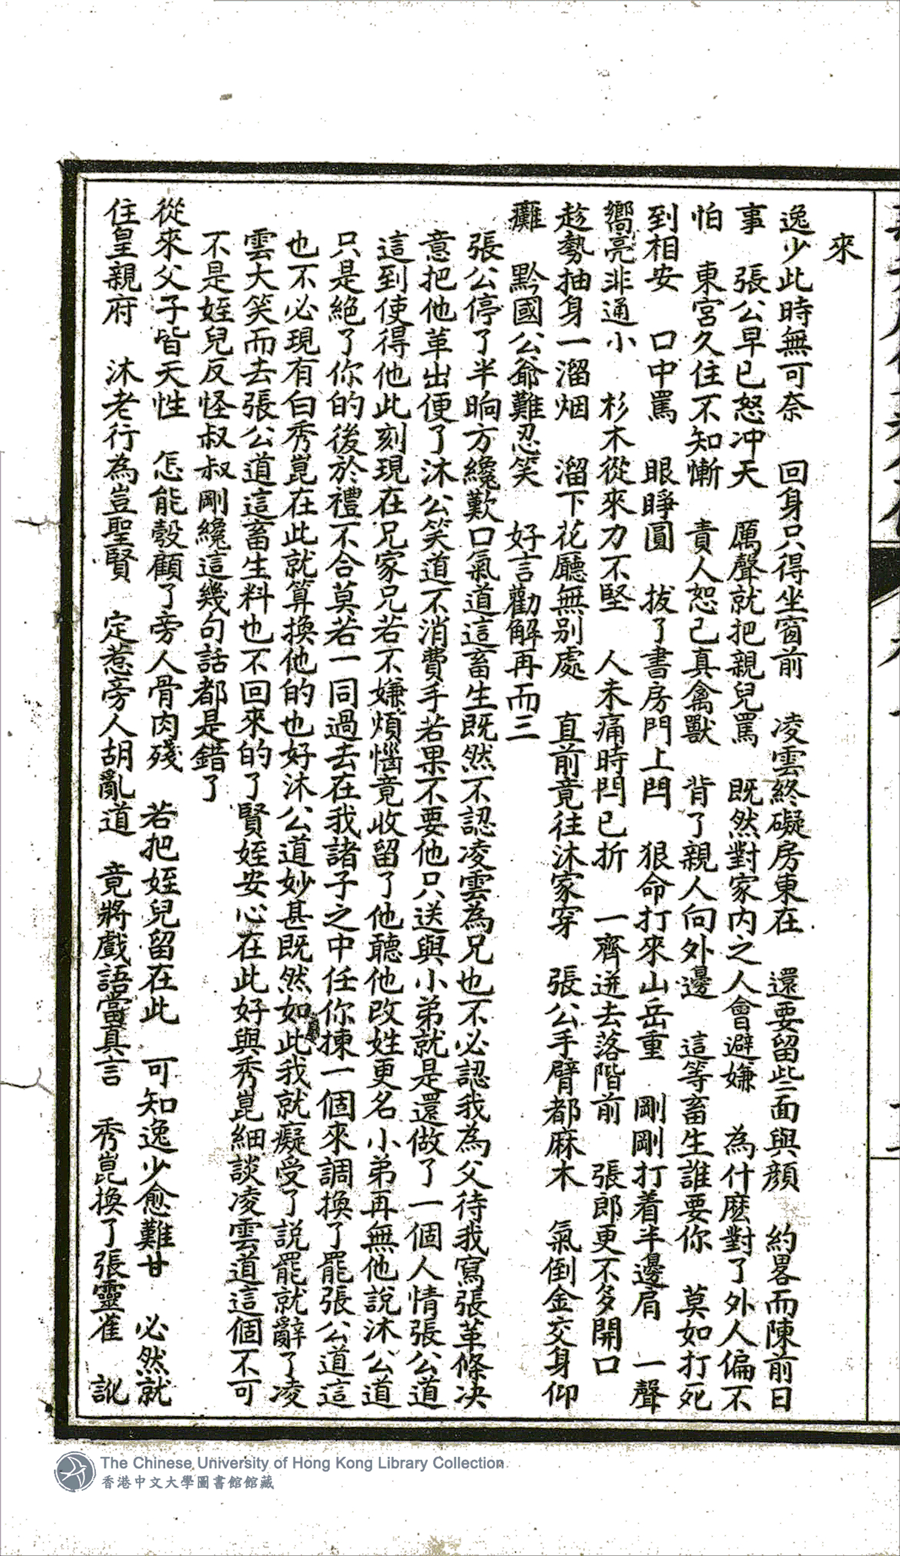 來
逸少此時無可奈　回身只得坐窗前　凌雲終礙房東在　還要留些面與顏　約畧而陳前日
事　張公早已怒冲天　厲聲就把親兒罵　既然對家內之人會避嫌　為什麽對了外人偏不
怕　東宮久住不知慚　責人恕己真禽獸　背了親人向外邊　這等畜生誰要你　莫如打死
到相安　口中罵　眼睜圓　拔了書房門上閂　狠命打來山岳重　剛剛打着半邊肩　一聲
嚮亮非通小　杉木從來力不堅　人未痛時閂已折　一齊迸去落階前　張郎更不多開口
趁勢抽身一溜烟　溜下花廳無別處　直前竟往沐家穿　張公手臂都麻木　氣倒金交身仰
癱　黔國公爺難忍笑　好言勸解再而三
張公停了半晌方纔歎口氣道這畜生既然不認凌雲為兄也不必認我為父待我寫張革條决
意把他革出便了沐公笑道不消費手若果不要他只送與小弟就是還做了一個人情張公道
這到使得他此刻現在兄家兄若不嫌煩惱竟收留了他聽他改姓更名小弟再無他說沐公道
只是絕了你的後於禮不合莫若一同過去在我諸子之中任你揀一個來調換了罷張公道這
也不必現有白秀崑在此就算換他的也好沐公道妙甚既然如此我就癡受了說罷就辭了凌
雲大笑而去張公道這畜生料也不回來的了賢姪安心在此好與秀崑細談凌雲道這個不可
不是姪兒反怪叔叔剛纔這幾句話都是錯了
從來父子皆天性　怎能彀顧了旁人骨肉殘　若把姪兒留在此　可知逸少愈難甘　必然就
住皇親府　沐老行為豈聖賢　定惹旁人胡亂道　竟將戲語當真言　秀崑換了張靈雀　訛
The Chinese University of Hong Kong Library Collection
香港中文大學圖書館館藏